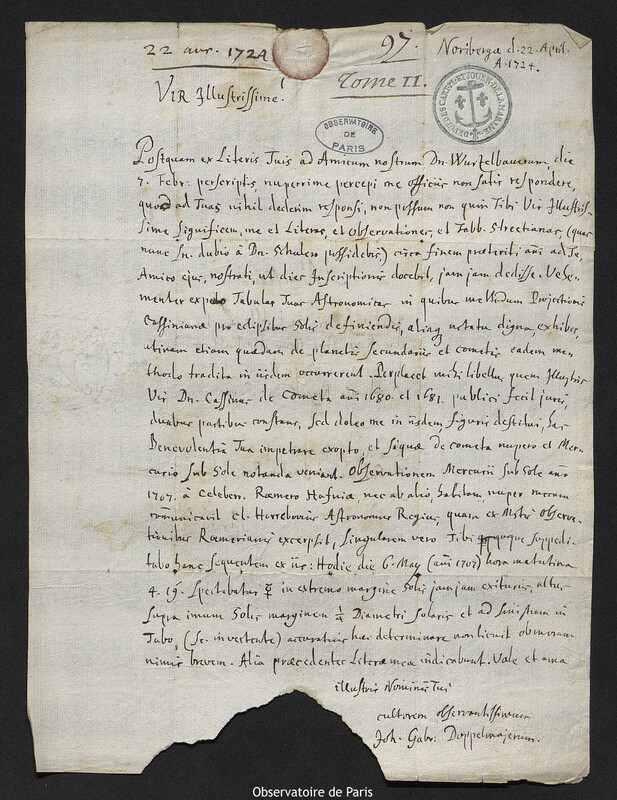 22 avr. 1724
97.
Tome II.
Noribergæ d. 22. April.
A. 1724.
DEPOT DES CARTES ET JOUR. DE LA MARINE
OBSERVATOIRE
DE
PARIS
Vir Illustrissime!
Postquam ex Literis Tuis ad Amicum nostrum Dn. Wurtzelbauerum die
7. Febr. perscriptis, nuperrime percepi me officiis non satis respondere,
quod ad Tuas nihil dederim responsi, non possum non quin Tibi Vir Illustris-
sime significem, me et Literas, et Observationes, et Tabb. Streetianas, (quas
nunc sn. dubio à Dn. Schulero possidebis,) circa finem præteriti ani ad Te,
Amico ejus, nostrati, ut dies Inscriptionis docebit, jam jam dedisse. Vehe-
menter expeto Tabulas Tuas Astronomicas in quibus methodum Projectionis
Cassinianæ pro eclipsibus Solis definiendis, aliaq notatu digna, exhibes,
utinam etiam quædam de planetis secundariis et cometis eadem me-
thodo tradita in iisdem occurrerent. Perplacet mihi libellus, quem Illustris
Vir Dn. Cassinus de Cometa ani 1680. et 1681. publici fecit juris,
duabus partibus constans, sed doleo me in iisdem figuris destitui, has
Benevolentiâ Tua impetrare exopto, et siquæ de cometa nupero et Mer-
curio sub Sole notanda veniant. Observationem Mercurii sub Sole ano
1707. à Celeberr. Rœmero Hafniæ, nec ab alio, habitam nuper mecum
communicavit cl. Horrebovius Astronomus Regius, quam ex Mstis Observa-
tionibus Rœmerianis excerpsit, singularem vero Tibi quoque suppedi-
tabo hanc sequentem ex iis: Hodie die 6. May (ani 1707) hora matutina
4. 19'. spectabatur ☿ in extremo margine Solis jam jam exiturus, altior
supra imum Solis marginem 1/4 Diametri Solaris et ad sinistram in
Tubo, (sc. invertente) accuratius hæc determinare non licuit ob moram
nimis brevem. Alia præcedentes Literæ meæ indicabunt. Vale et ama
illustris Nominis Tui
cultorem observantissimum
Joh. Gabr. Doppelmajerum.
Observatoire de Paris